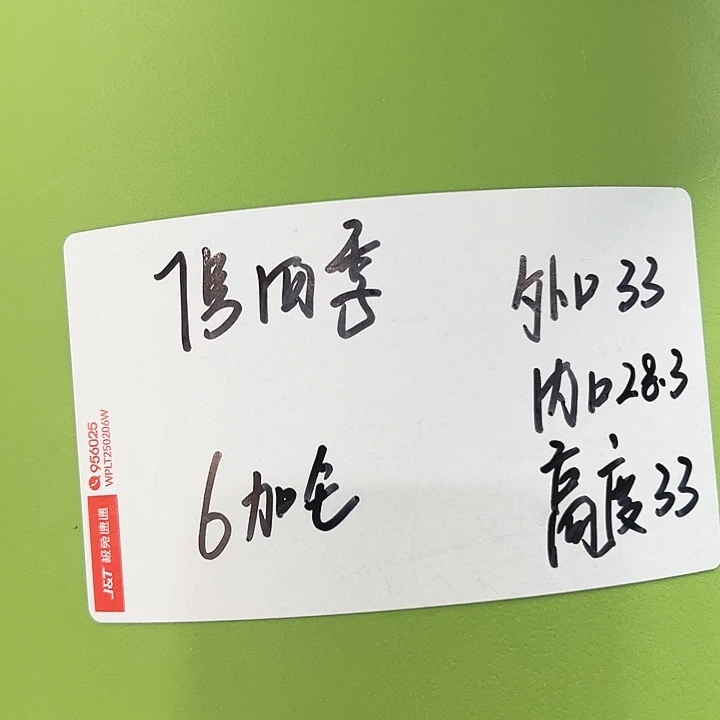 7号四季
外口33
内口28.3
6加仑
高度33
956025
WPLT250206W
J&T 极兔速递